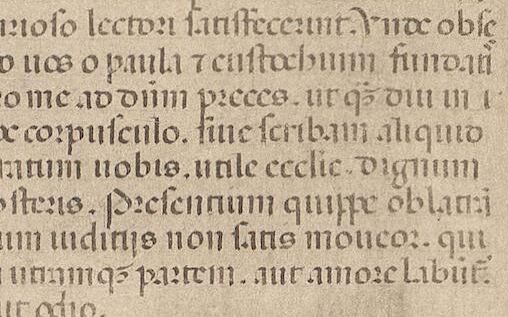 rioso lectori satisfecerint. Vnde obse
uos o paula ⁊ eustochium fundatis
me ad dn̄m preces. ut qȝ diu in
corpusculo. siue scribam aliquid
gratum uobis. utile ecclīe. dignum
posteris. Presentium quippe oblatrā
um iuditijs non satis moueor. qui
utramqȝ partem. aut amore labūt᷑.
aut odio.